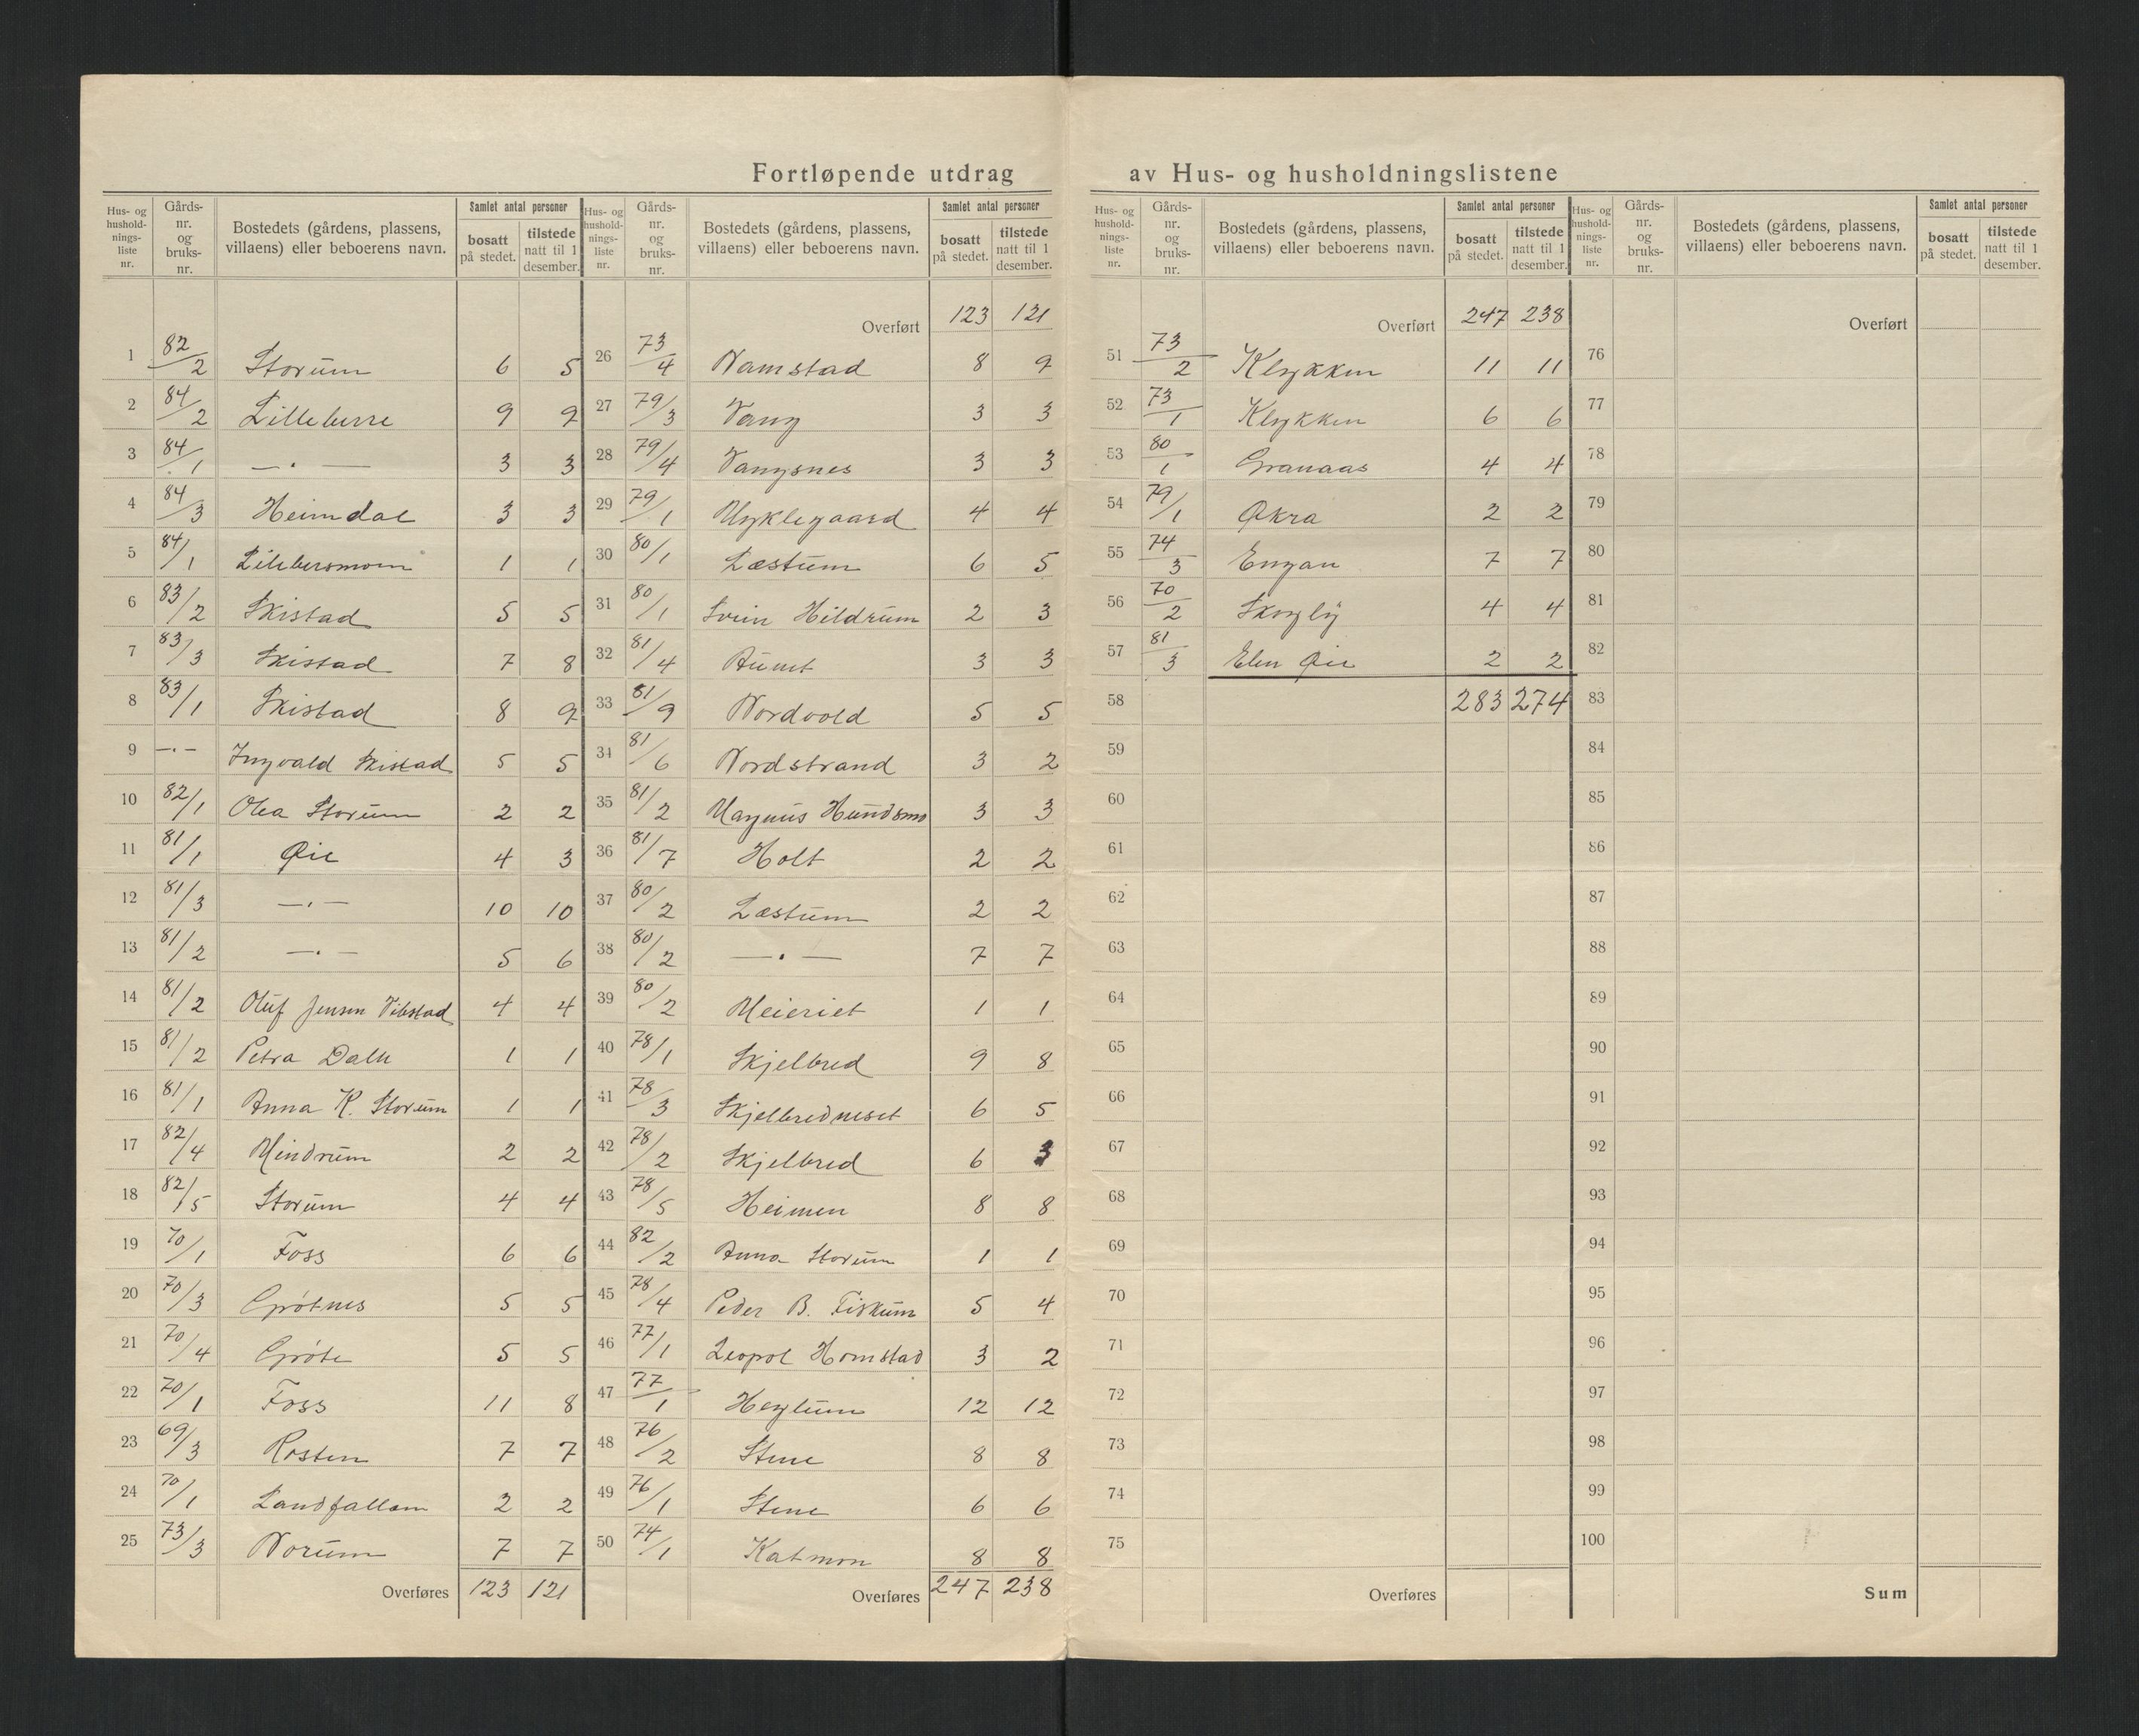 Fortløpende utdrag av Hus- og husholdningslistene
Hus- og hushold- nings- liste nr. Gårds- nr. og bruks- nr. Bostedets (gårdens, plassens, villaens) eller beboerens navn. Samlet antal personer bosatt på stedet. tilstede natt til 1 desember.
1 82/2 Storum 6 5
2 84/2 Lilleberre 9 9
3 84/1 —·— 3 3
4 84/3 Heimdal 3 3
5 84/1 1 1
6 83/2 Skistad 5 5
7 83/3 Skistad 7 8
8 83/1 Skistad 8 9
9 —·— Ingvald Skistad 5 5
10 82/1 Olea Storum 2 2
11 81/1 Øie 4 3
12 81/3 —·— 10 10
13 81/2 —·— 5 6
14 81/2 Oluf Jensen Vibstad 4 4
15 81/2 Petra Dalu 1 1
16 81/1 Anna K. Storum 1 1
17 82/4 Mindrum 2 2
18 82/5 Storum 4 4
19 70/1 Foss 6 6
20 70/3 Grötnes 5 5
21 70/4 Gröte 5 5
22 70/1 Foss 11 8
23 69/3 Rosten 7 7
24 70/1 Landfallom 2 2
25 73/3 Norum 7 7
Overføres 123 121
Hus- og hushold- nings- liste nr. Gårds- nr. og bruks- nr. Bostedets (gårdens, plassens, villaens) eller beboerens navn. Samlet antal personer bosatt på stedet. tilstede natt til 1 desember.
Overført 123 121
26 73/4 Namstad 8 9
27 79/3 Vang 3 3
28 79/4 Vangsnes 3 3
29 79/1 Myklegaard 4 4
30 80/1 Læstum 6 5
31 80/1 Svein Hildrum 2 3
32 81/4 Aunet 3 3
33 81/9 Nordvold 5 5
34 81/6 Nordstrand 3 2
35 81/2 Magnus Hundsmo 3 3
36 81/7 Holt 2 2
37 80/2 Læstum 2 2
38 80/2 —·— 7 7
39 80/2 Meieriet 1 1
40 78/1 Skjelbred 9 8
41 78/3 Skjelbredneset 6 5
42 78/2 Skjelbred 6 3
43 78/5 Heimen 8 8
44 82/2 Anna Storum 1 1
45 78/4 Peder B. Fiskum 5 4
46 77/1 Leopol Homstad 3 2
47 77/1 Heglum 12 12
48 76/2 Stene 8 8
49 76/1 Stene 6 6
50 74/1 Katmon 8 8
Overføres 247 238
Hus- og hushold- nings- liste nr. Gårds- nr. og bruks- nr. Bostedets (gårdens, plassens, villaens) eller beboerens navn. Samlet antal personer bosatt på stedet. tilstede natt til 1 desember.
Overført 247 238
51 73/2 Klykken 11 11
52 73/1 Klykken 6 6
53 80/1 Granaas 4 4
54 79/1 Økra 2 2
55 74/3 Engan 7 7
56 70/2 Skogly 4 4
57 81/3 Elen Øie 2 2
58 283 274
59
60
61
62
63
64
65
66
67
68
69
70
71
72
73
74
75
Overføres
Hus- og hushold- nings- liste nr. Gårds- nr. og bruks- nr. Bostedets (gårdens, plassens, villaens) eller beboerens navn. Samlet antal personer bosatt på stedet. tilstede natt til 1 desember.
Overført
76
77
78
79
80
81
82
83
84
85
86
87
88
89
90
91
92
93
94
95
96
97
98
99
100
Sum